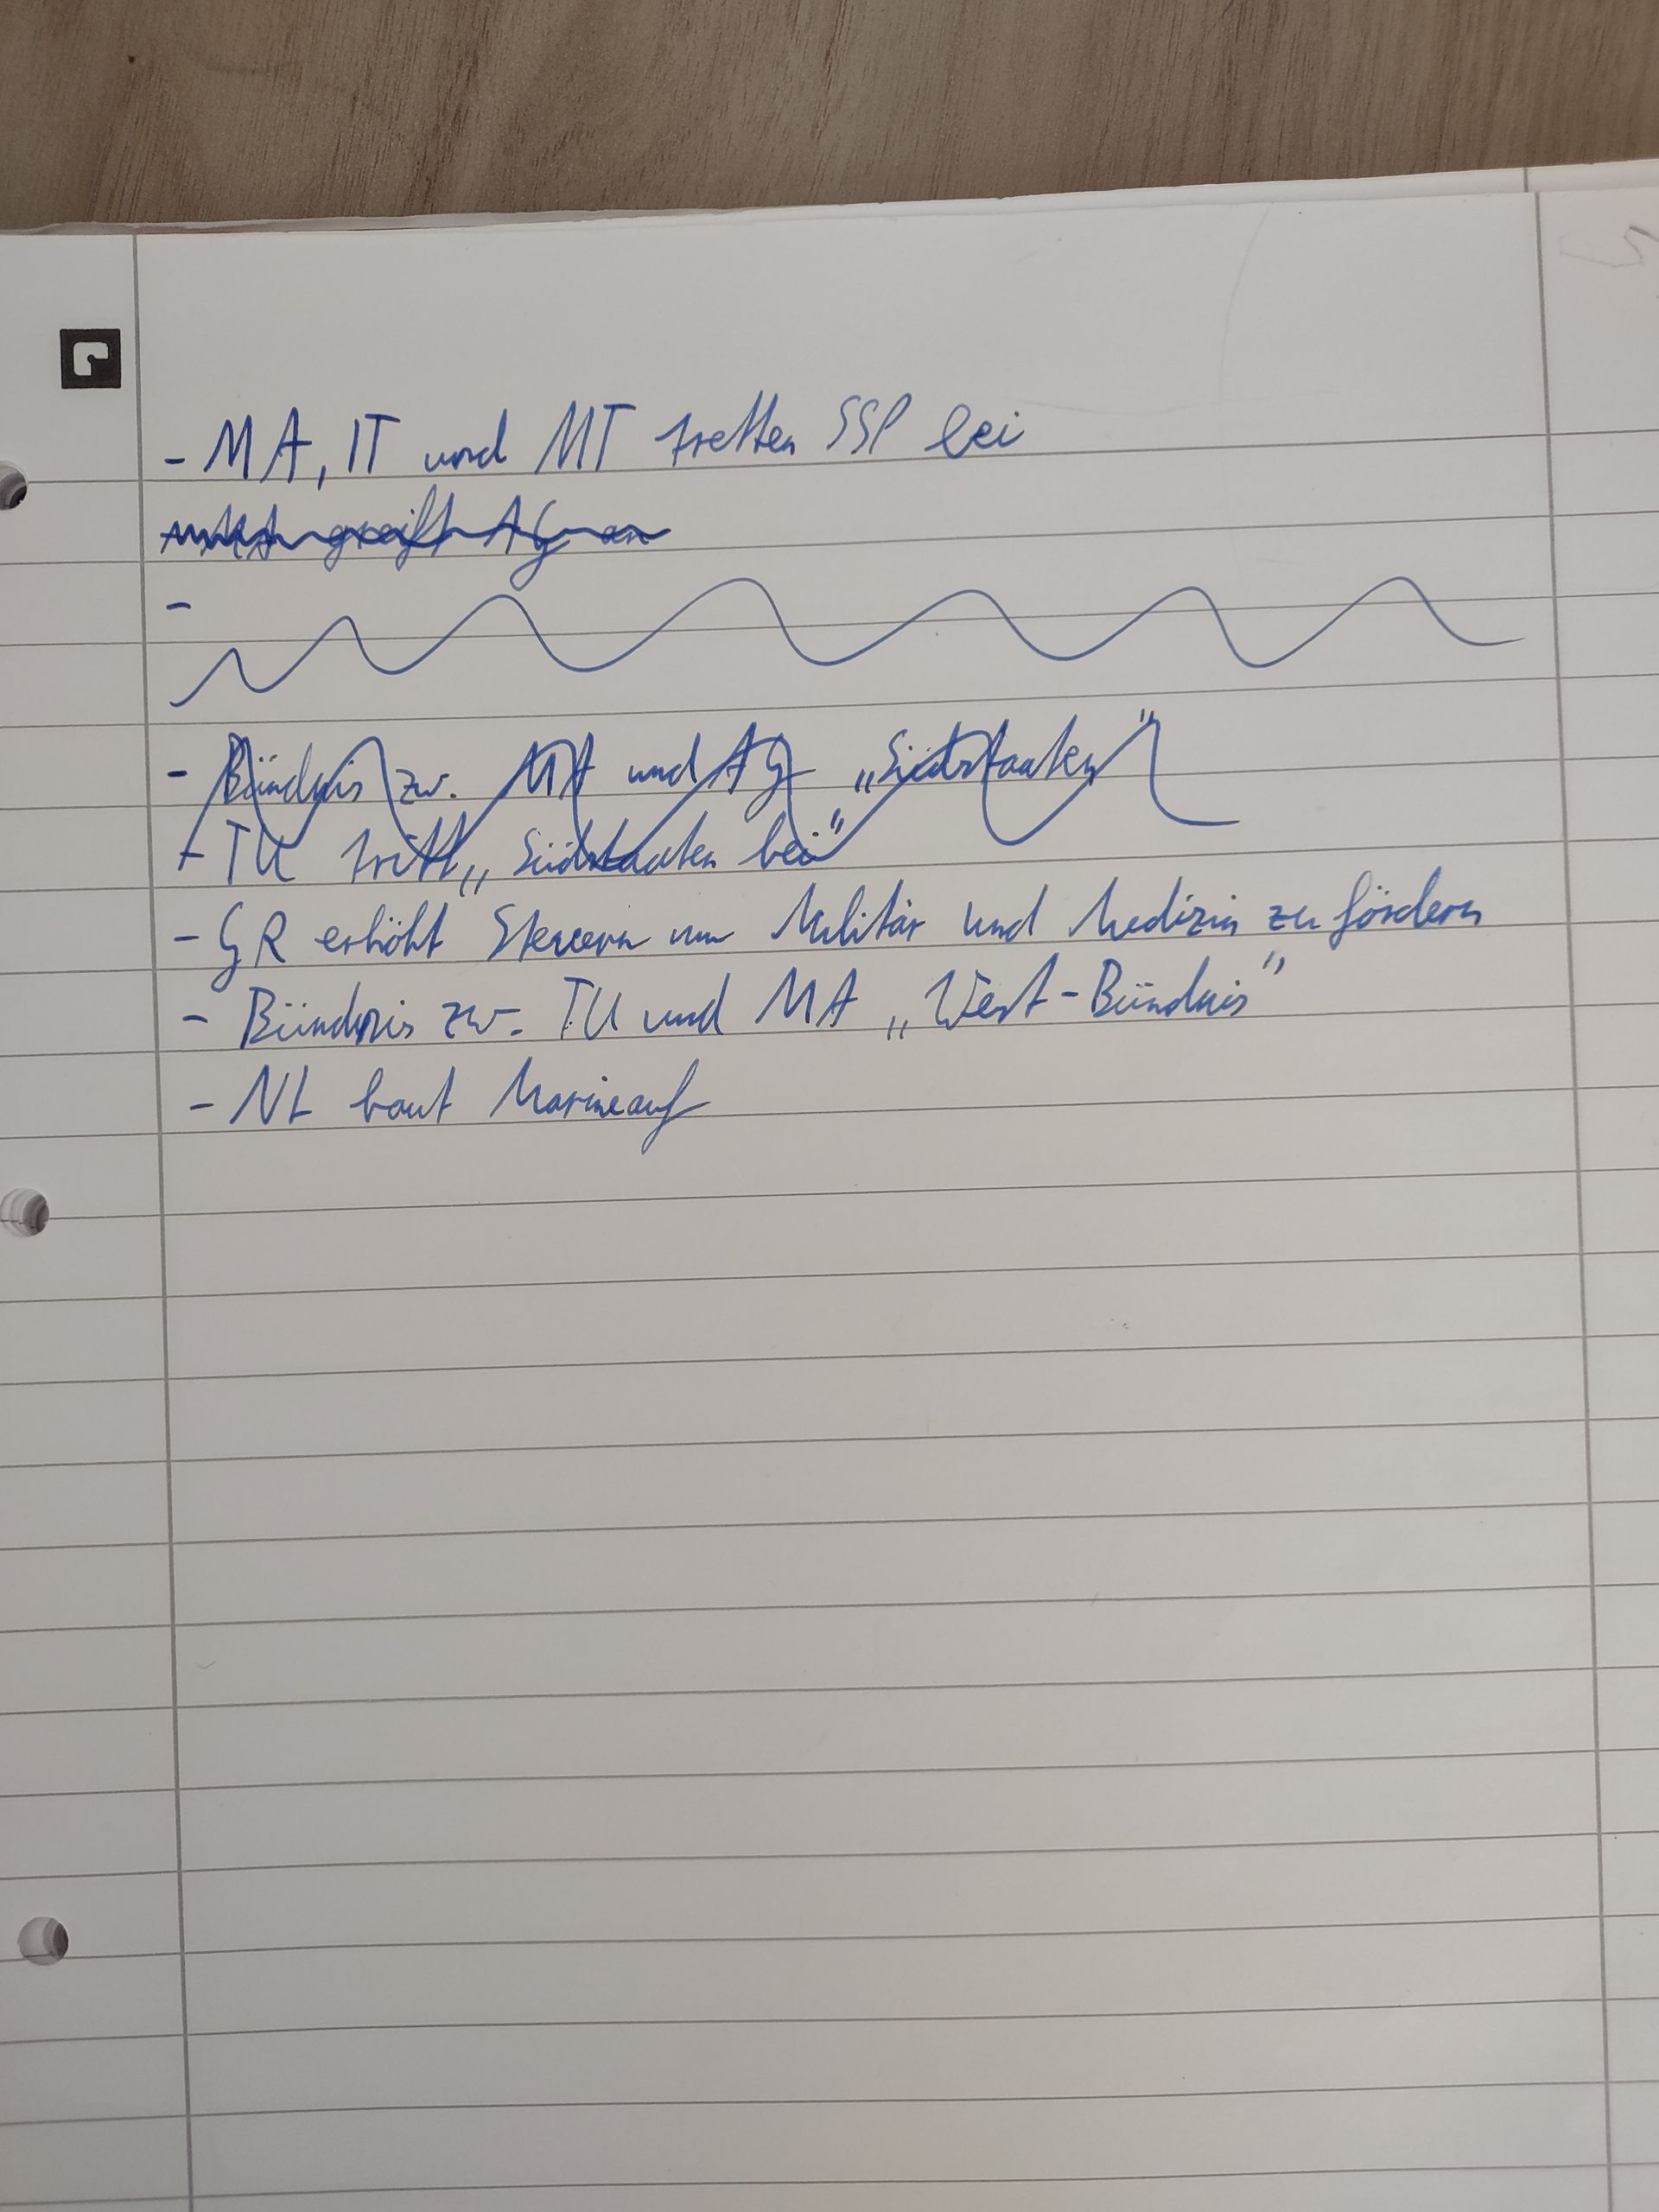 - MA, IT und MT tretten SSP bei
MA greift AG an
-
- Bündnis zw. MA und AG „Südstaaten"
- TU tritt „Südstaaten bei"
- GR erhöht Steuern um Militär und Medizin zu fördern
- Bündnis zw. TU und MA „West-Bündnis"
- NL baut Marine auf